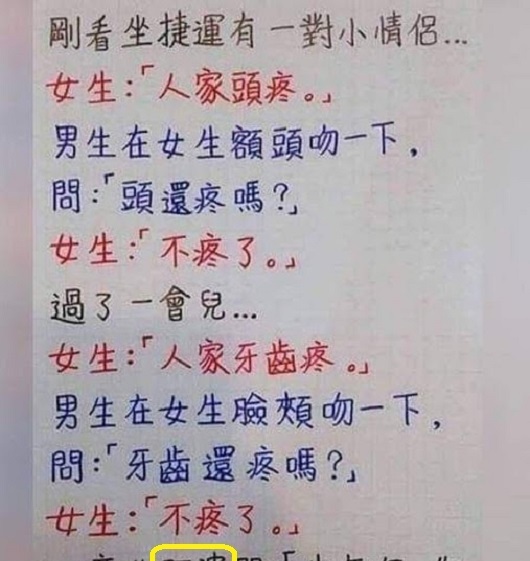 剛看坐捷運有一對小情侶...
女生:「人家頭疼。」
男生在女生額頭吻一下,
問:「頭還疼嗎?」
女生:「不疼了。」
過了一會兒...
女生:「人家牙齒疼。」
男生在女生臉頰吻一下,
問:「牙齒還疼嗎?」
女生:「不疼了。」